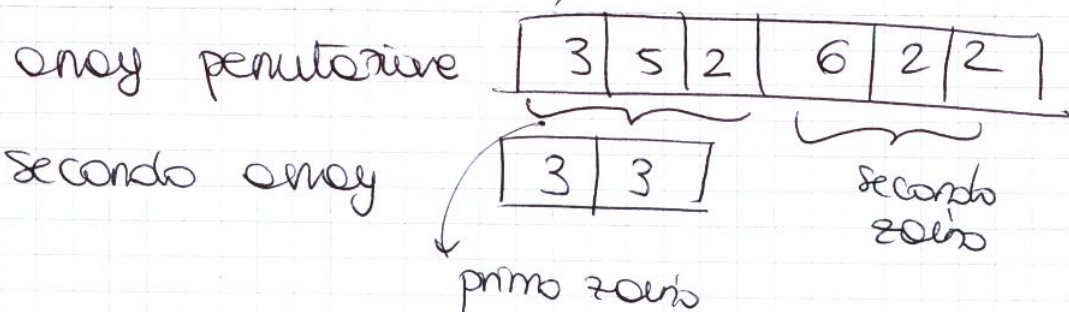 array permutazione 3 5 2 6 2 2
secondo array 3 3
secondo
zaino
primo zaino